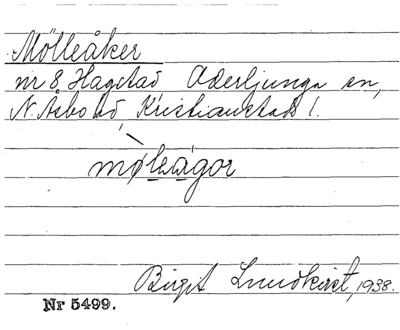 Mölleåker
nr 8 Hagstad Oderljunga sn,
N. Åsbo hd, Kristianstads l.
møleågor
Birgit Lundkvist, 1938.
Nr 5499.